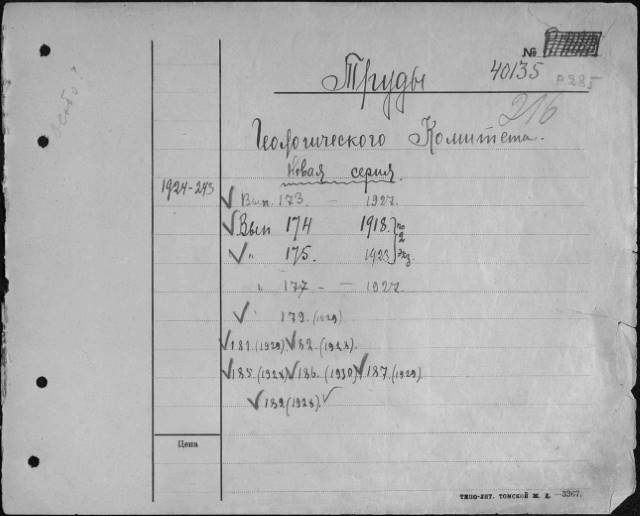 №
Труды 40135 Р285
216
Геологического Комитета.
Новая серия.
1924-243
Вып. 173 — 1927.
Вып 174 1918. по
" 175. 1923 2 экз
" 177 - — 1927.
" 179. (1929)
181. (1929). 182. (1928).
185. (1928) 186. (1930) 187. (1929).
189 (1928).
Цена
ТИПО-ЛИТ. ТОМСКОЙ Ж. Д. —3367.